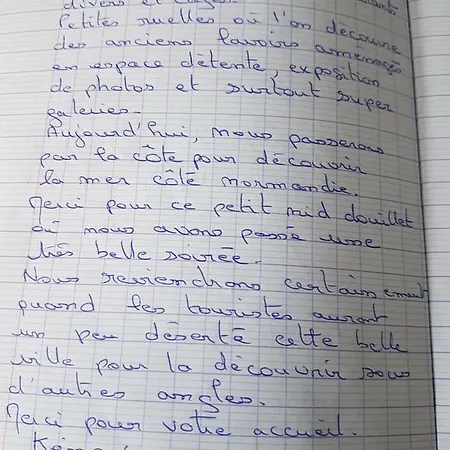 divers et
Petites ruelles où l'on découvre
des anciens lavoirs aménagés
en espace détente, exposition
de photos et surtout super
galeries.
Aujourd'hui, nous passerons
par la côte pour découvrir
la mer côté normandie.
Merci pour ce petit nid douillet
où nous avons passé une
très belle soirée.
Nous reviendrons certainement
quand les touristes auront
un peu déserté cette belle
ville pour la découvrir sous
d'autres angles.
Merci pour votre accueil.